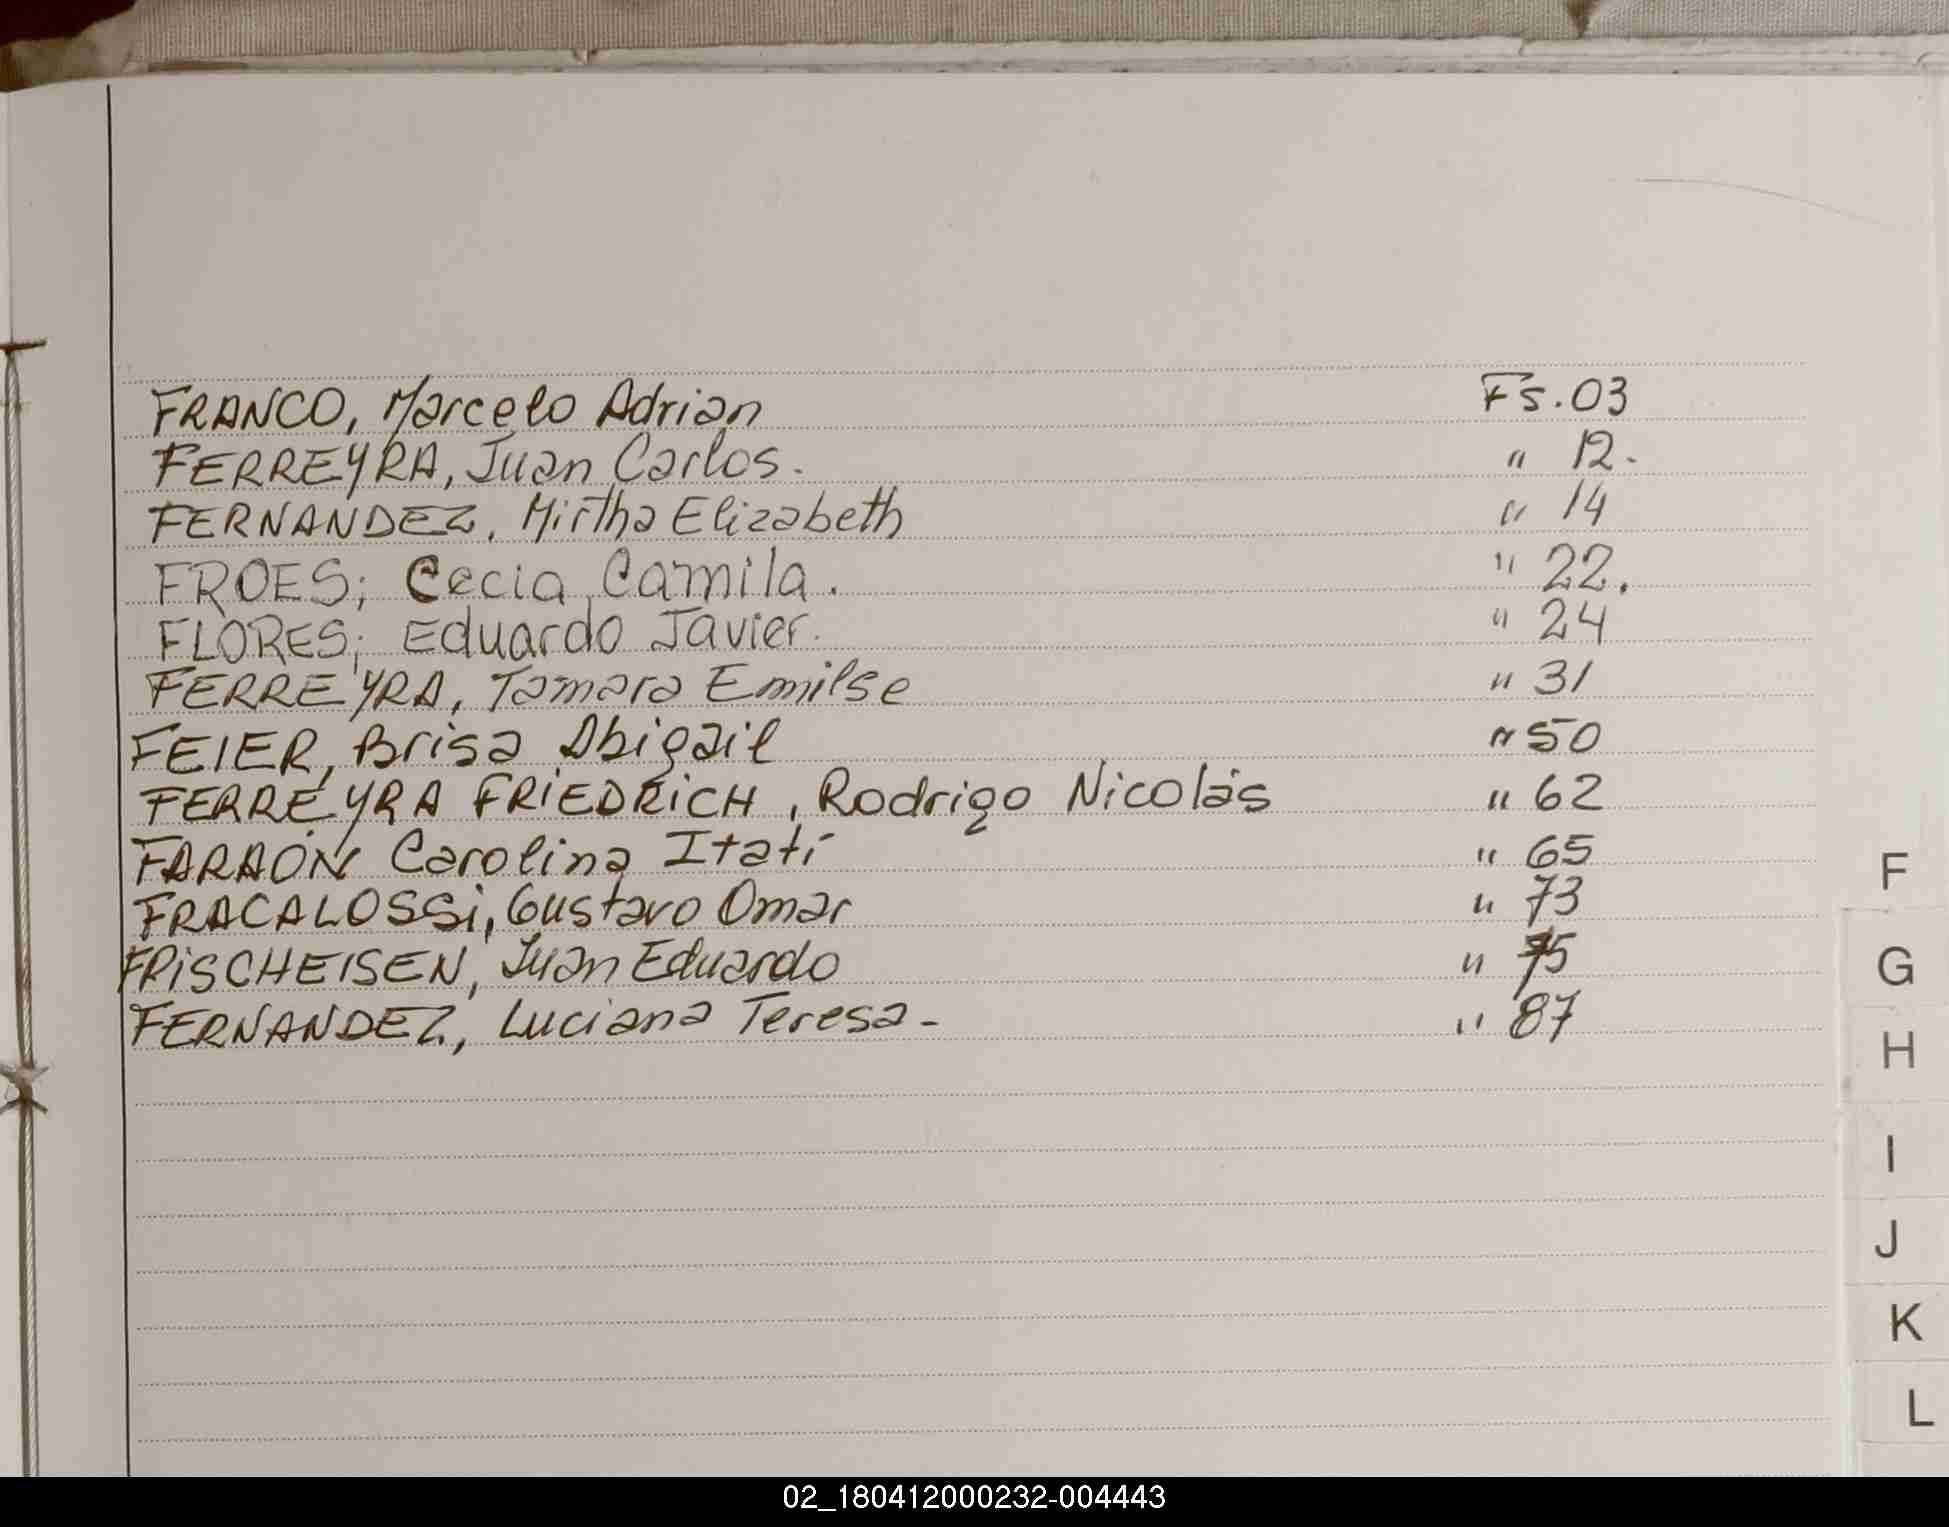 FRANCO, Marcelo Adrian Fs. 03
FERREYRA, Juan Carlos. " 12.
FERNANDEZ, Mirtha Elizabeth " 14
FROES; Cecia Camila. " 22.
FLORES; Eduardo Javier. " 24
FERREYRA, Tamara Emilse " 31
FEIER, Brisa Abigail " 50
FERREYRA FRIEDRICH, Rodrigo Nicolás " 62
FARAON Carolina Itatí " 65
FRACALOSSi, Gustavo Omar " 73
FRISCHEISEN, Juan Eduardo " 75
FERNANDEZ, Luciana Teresa - " 87
F
G
H
I
J
K
L
02_180412000232-004443